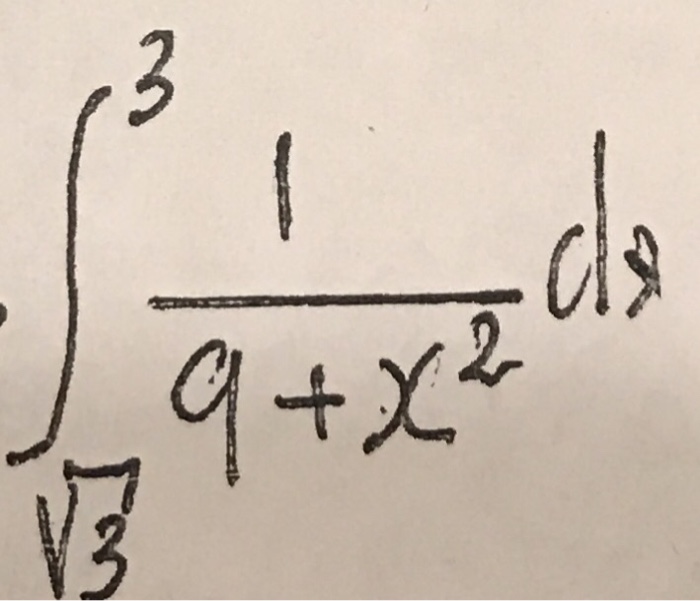 \int_{\sqrt{3}}^{3} \frac{1}{9+x^2} dx